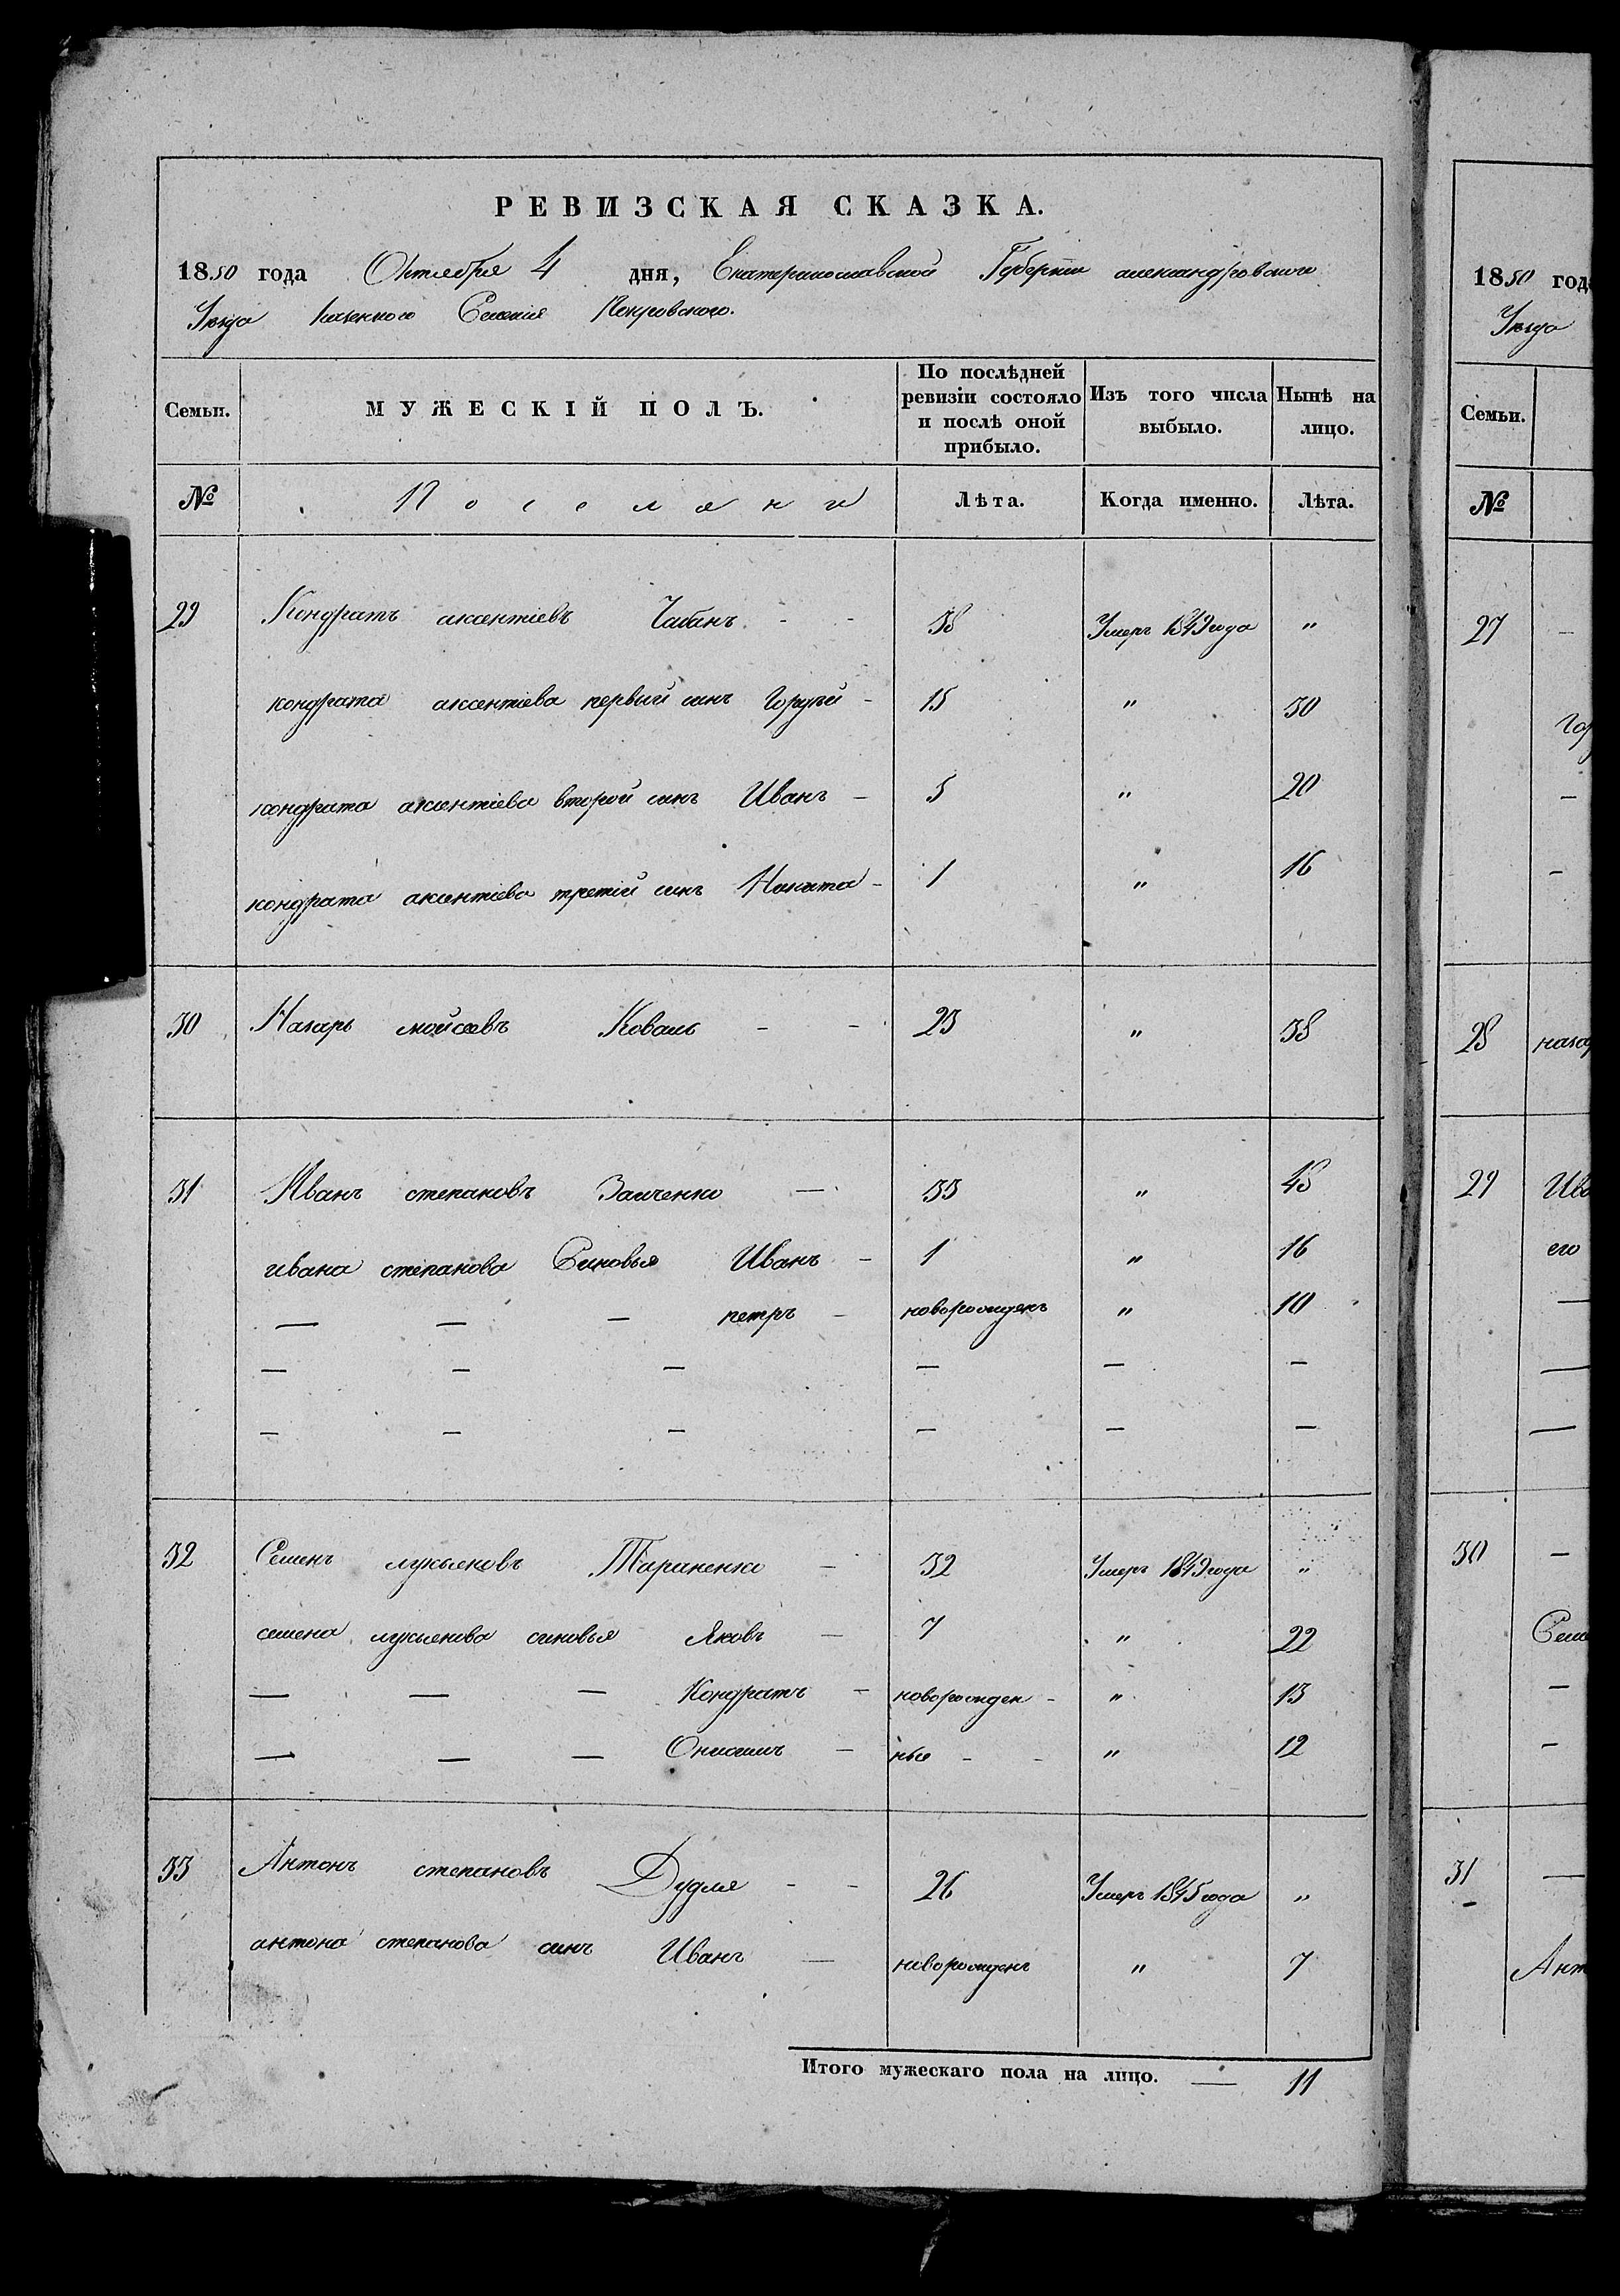 РЕВИЗСКАЯ СКАЗКА.
1850 года Октября 4 дня, Екатеринославской Губернии александровского
Уезда казенного Селения Покровского.
Семьи. МУЖЕСКІЙ ПОЛЪ. По послѣдней ревизіи состояло и послѣ оной прибыло. Изъ того числа выбыло. Нынѣ на лицо.
№ Поселяни Лѣта. Когда именно. Лѣта.
29 Кондратъ аксентіевъ Чабанъ - - 38 Умеръ 1849 года "
кондрата аксентіева первый синъ - 15 " 30
кондрата аксентіева второй синъ Иванъ - 5 " 20
кондрата аксентіева третій синъ Никита - 1 " 16
30 Назаръ мойсеевъ Коваль - - 23 " 38
31 Иванъ степановъ Заиченко - 33 " 48
ивана степанова Синовья Иванъ - 1 " 16
— — — петръ - новорожденъ " 10
— — — — — —
— — — — — —
32 Семенъ лукьяновъ Тараненко - 32 Умеръ 1849 года "
семена лукьянова синовья Яковъ - 7 " 22
— — — Кондратъ - новорожден - " 13
— — — Онисимъ - ные - - " 12
33 Антонъ степановъ Дудля - - 26 Умеръ 1845 года "
антона степанова синъ Иванъ — новорожденъ " 7
Итого мужескаго пола на лицо. — 11
1850 года
Уезда
Семьи.
№
27 —
—
—
28 назар
29 Ива
его
—
—
—
30 —
Семе
—
—
31 —
Ант